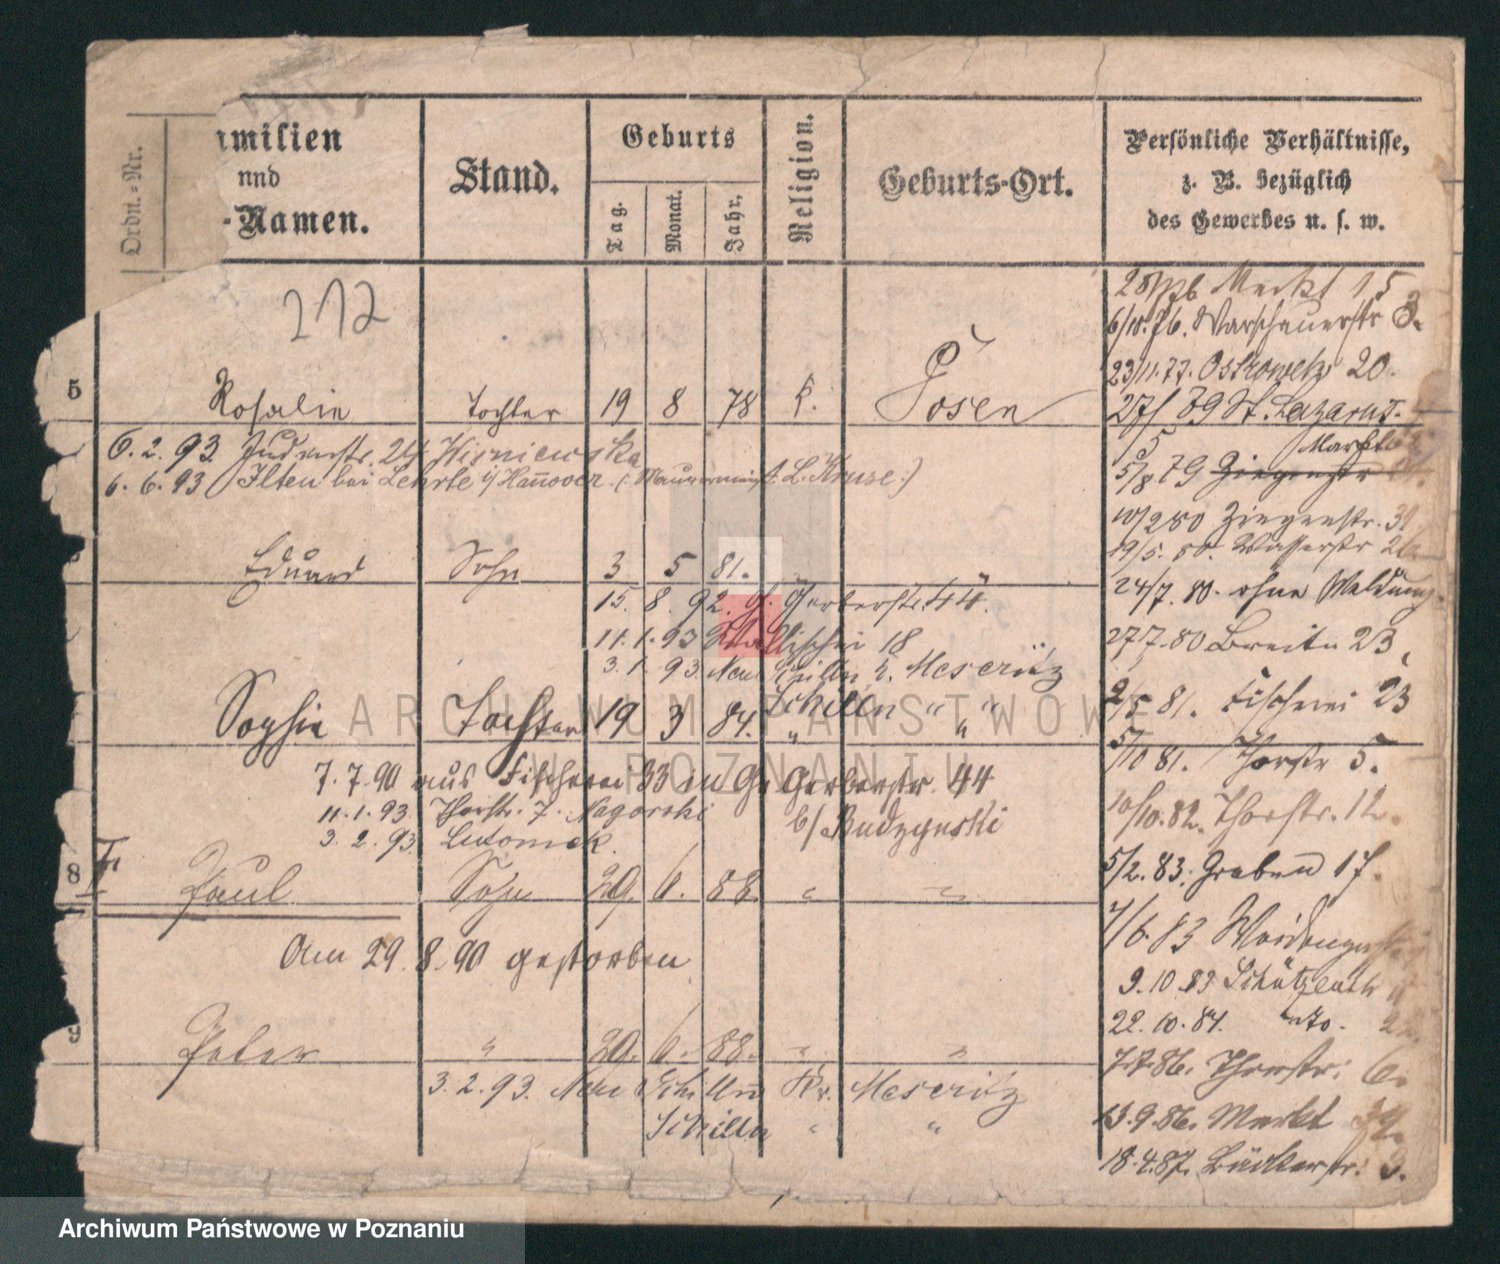 Ordn.-Nr.
amilien
und
-Namen.
Stand.
Geburts
Tag.
Monat.
Jahr.
Religion.
Geburts-Ort.
Persönliche Verhältnisse,
z. B. bezüglich
des Gewerbes u. s. w.
212
5 Rosalie Tochter 19 8 78 k. Posen
6.2.93. Judenstr. 24 Wisniewska
6.6.93 Ilten bei Lehrte i/Hannover (Maurermeist L. Kruse.)
Eduard Sohn 3 5 81.
15.8.92. Gr. Gerberstr. 44.
11.1.93 Wallischei 18
3.1.93. Neu Schilln k. Meseritz
Schilln " "
Sophie Tochter 19 3 84. " "
7.7.90 aus Fischerei 33 in Gr Gerberstr. 44
11.1.93. Thorstr. 7. Nagorski b/Budzynski
3.2.93. Lutomek.
8 Paul Sohn 29. 6. 88. " "
Am 29.8.90 gestorben
9 Peter " 29. 6. 88. " "
3.2.93. Neu Schilln Kr. Meseritz
Schilln " "
Markt 15
6/10.76. Warschauerstr 3.
23/11.77. Ostrowek 20.
27/ 79 St. Lazarus.
Markt
5/8 79 Ziegenstr
10/2 80 Ziegenstr. 31
19/5. 80. Wasserstr
24/7. 80. ohne Meldung.
27 7. 80 Breite 23
2/5 81. Fischerei 23
5/10 81. Thorstr 5.
10/10.82. Thorstr. 12.
5/2. 83. Graben 17.
7/6.83
9.10.83 Schützenstr
22.10.84. do.
7.7.86. Thorstr. 6.
13.9.86. Markt
18.4.87. Bäckerstr. 3.
ARCHIWUM PAŃSTWOWE
W POZNANIU
Archiwum Państwowe w Poznaniu